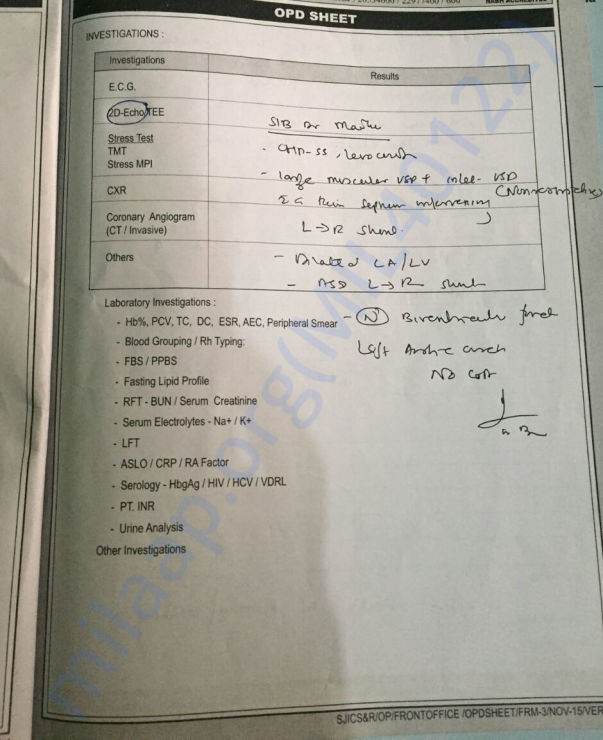 OPD SHEET
INVESTIGATIONS :
Investigations
Results
E.C.G.
2D-Echo/TEE
S/B Dr
Stress Test
TMT
Stress MPI
- CHD-SS, levocardia
- large muscular VSD + inlet VSD
(Nonrestrictive)
CXR
thin septum intervening
Coronary Angiogram
(CT / Invasive)
L→R shunt
Others
- Dilated LA/LV
- ASD L→R shunt
Laboratory Investigations :
- Hb%, PCV, TC, DC, ESR, AEC, Peripheral Smear
- (N) Biventricular
- Blood Grouping / Rh Typing:
Left Aortic arch
- FBS / PPBS
No
- Fasting Lipid Profile
- RFT - BUN / Serum Creatinine
- Serum Electrolytes - Na+ / K+
- LFT
- ASLO / CRP / RA Factor
- Serology - HbgAg / HIV / HCV / VDRL
- PT. INR
- Urine Analysis
Other Investigations
SJICS&R/OP/FRONTOFFICE /OPDSHEET/FRM-3/NOV-15/VER
milaap.org(MIL401122)